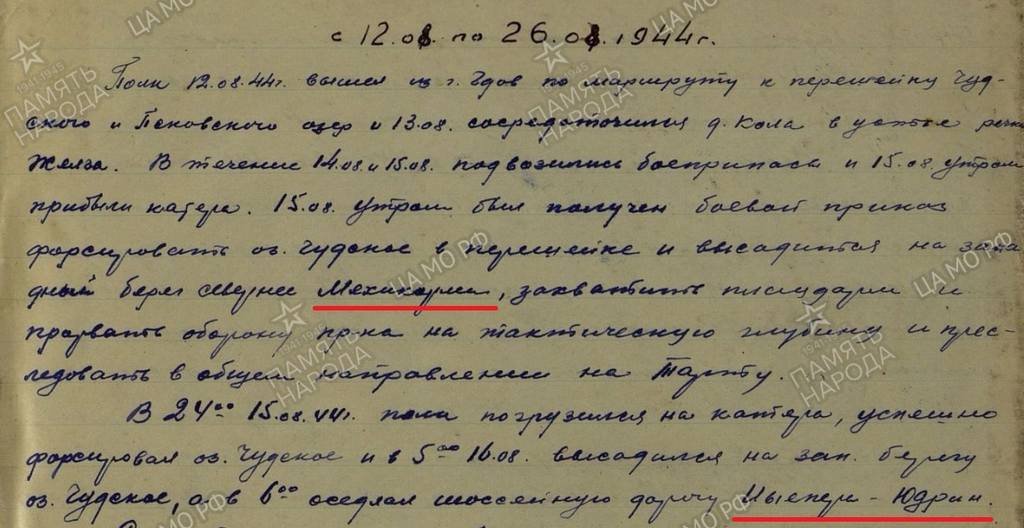 с 12.08. по 26.08.1944г.
Полк 12.08.44г. вышел из г. Гдов по маршруту к перешейку Чуд-
ского и Псковского озер и 13.08. сосредоточился д. Кола в устье речки
Желча. В течение 14.08 и 15.08. подвозились боеприпасы и 15.08 утром
прибыли катера. 15.08. утром был получен боевой приказ
форсировать оз. Чудское в перешейке и высадится на запа
дный берег севернее Мехикорма, захватить плацдарм и
прорвать оборону пр-ка на тактическую глубину и прес-
ледовать в общем направлении на Тарту.
В 24⁰⁰ 15.08.44г. полк погрузился на катера, успешно
форсировал оз. Чудское и в 5⁰⁰ 16.08. высадился на зап. берегу
оз. Чудское, а в 6⁰⁰ оседлал шоссейную дорогу - Юдрин.
ЦАМО РФ
ПАМЯТЬ НАРОДА
1941-1945